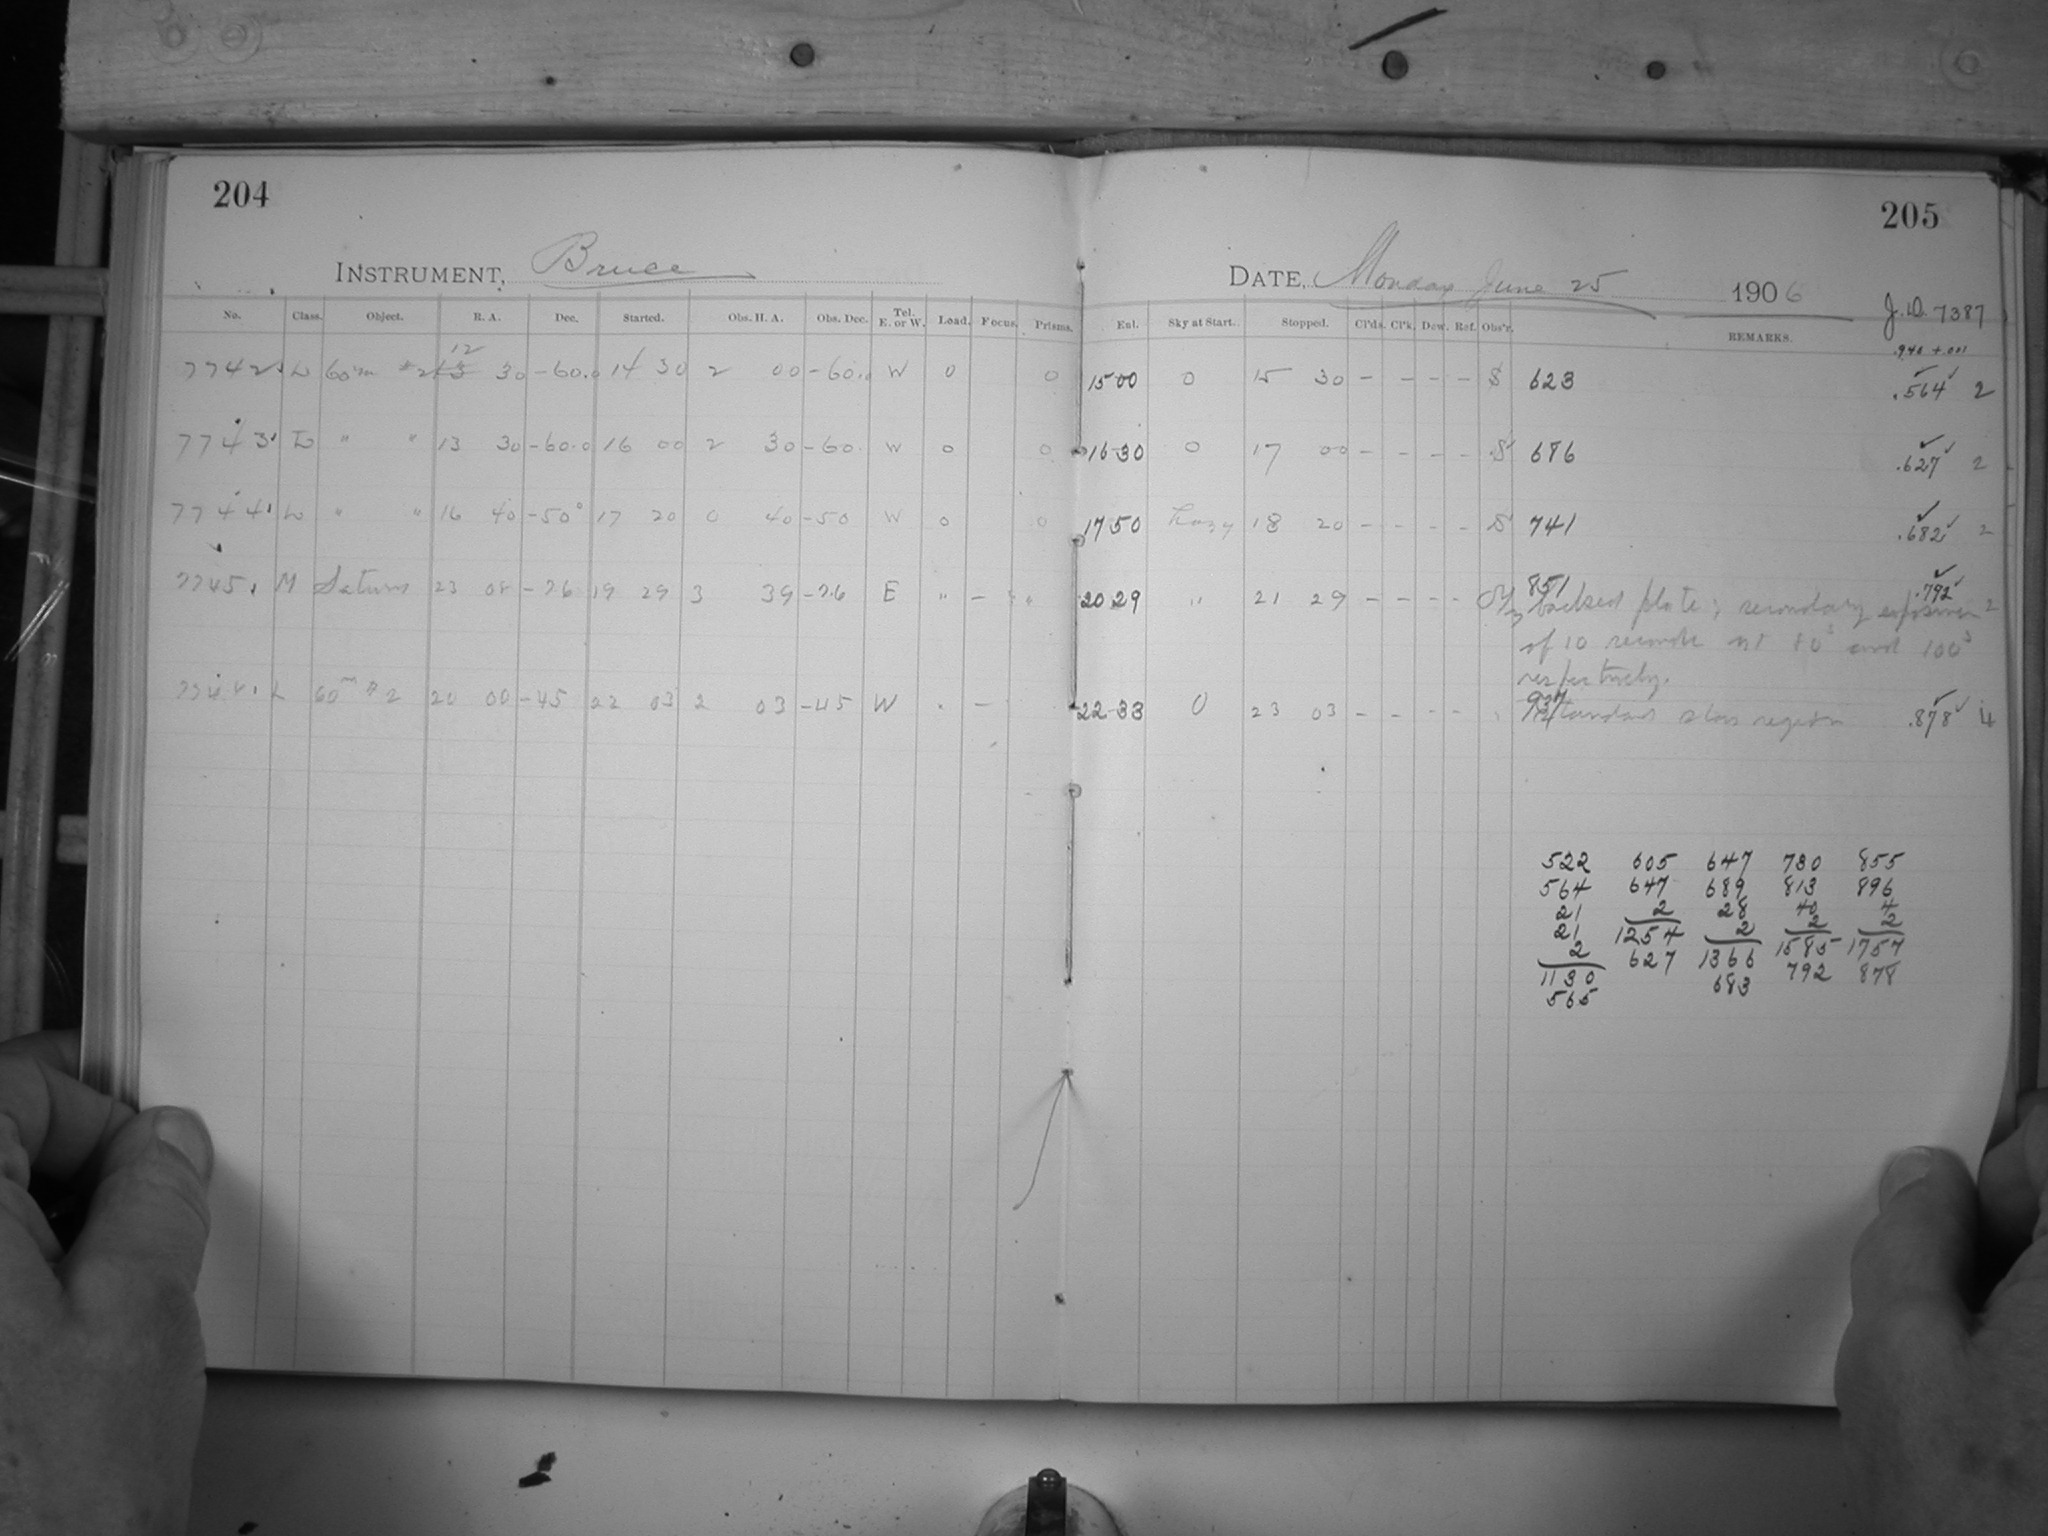 204
205
INSTRUMENT, Bruce
DATE, Monday June 25 1906
J.D. 7387
No. Class. Object. R. A. Dec. Started. Obs. H. A. Obs. Dec. Tel. E. or W. Load. Focus. Prisms. Ent. Sky at Start. Stopped. Cl'ds. Cl'k. Dew. Ref. Obs'r. REMARKS.
.940 + .001
12
7742 L 60m #2 13 30 -60.0 14 30 2 00 -60. W 0 0 15 00 0 15 30 - - - - S 623 .564 2
7743 L " " 13 30 -60.0 16 00 2 30 -60. W 0 0 16 30 0 17 00 - - - - S 686 .627 2
7744 L " " 16 40 -50° 17 20 0 40 -50 W 0 0 17 50 Hazy 18 20 - - - - S 741 .682 2
7745 M Saturn 23 08 -26 19 29 3 39 -26 E " - 20 29 " 21 29 - - - - 851 .792
backed plate; secondary exposures 2
of 10 seconds at 80s and 100s
respectively.
L 60m #2 20 00 -45 22 03 2 03 -45 W - 22 33 0 23 03 - - - - 937 .878 4
Standard star region
522 605 647 730 855
564 647 689 813 896
21 2 28 40 4
21 1254 2 2 2
2 627 1366 1585 1757
1130 683 792 878
565